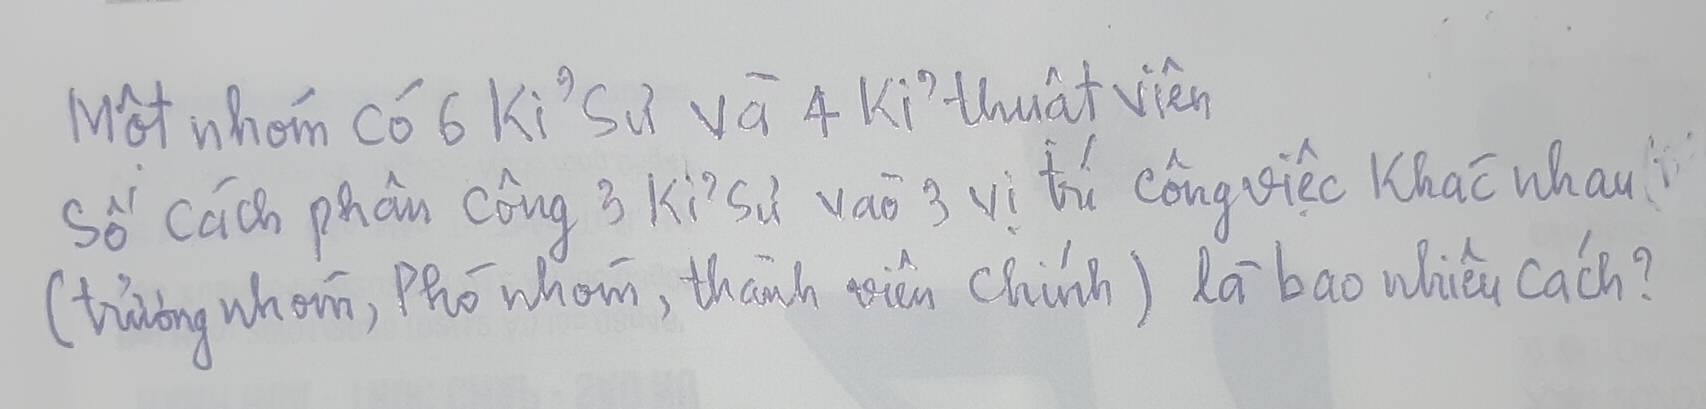 Một nhóm có 6 kĩ sư và 4 kĩ thuật viên
Số cách phân công 3 kĩ sư vào 3 vị trí công việc khác nhau
(trưởng nhóm, Phó nhóm, thành viên chính) là bao nhiêu cách?